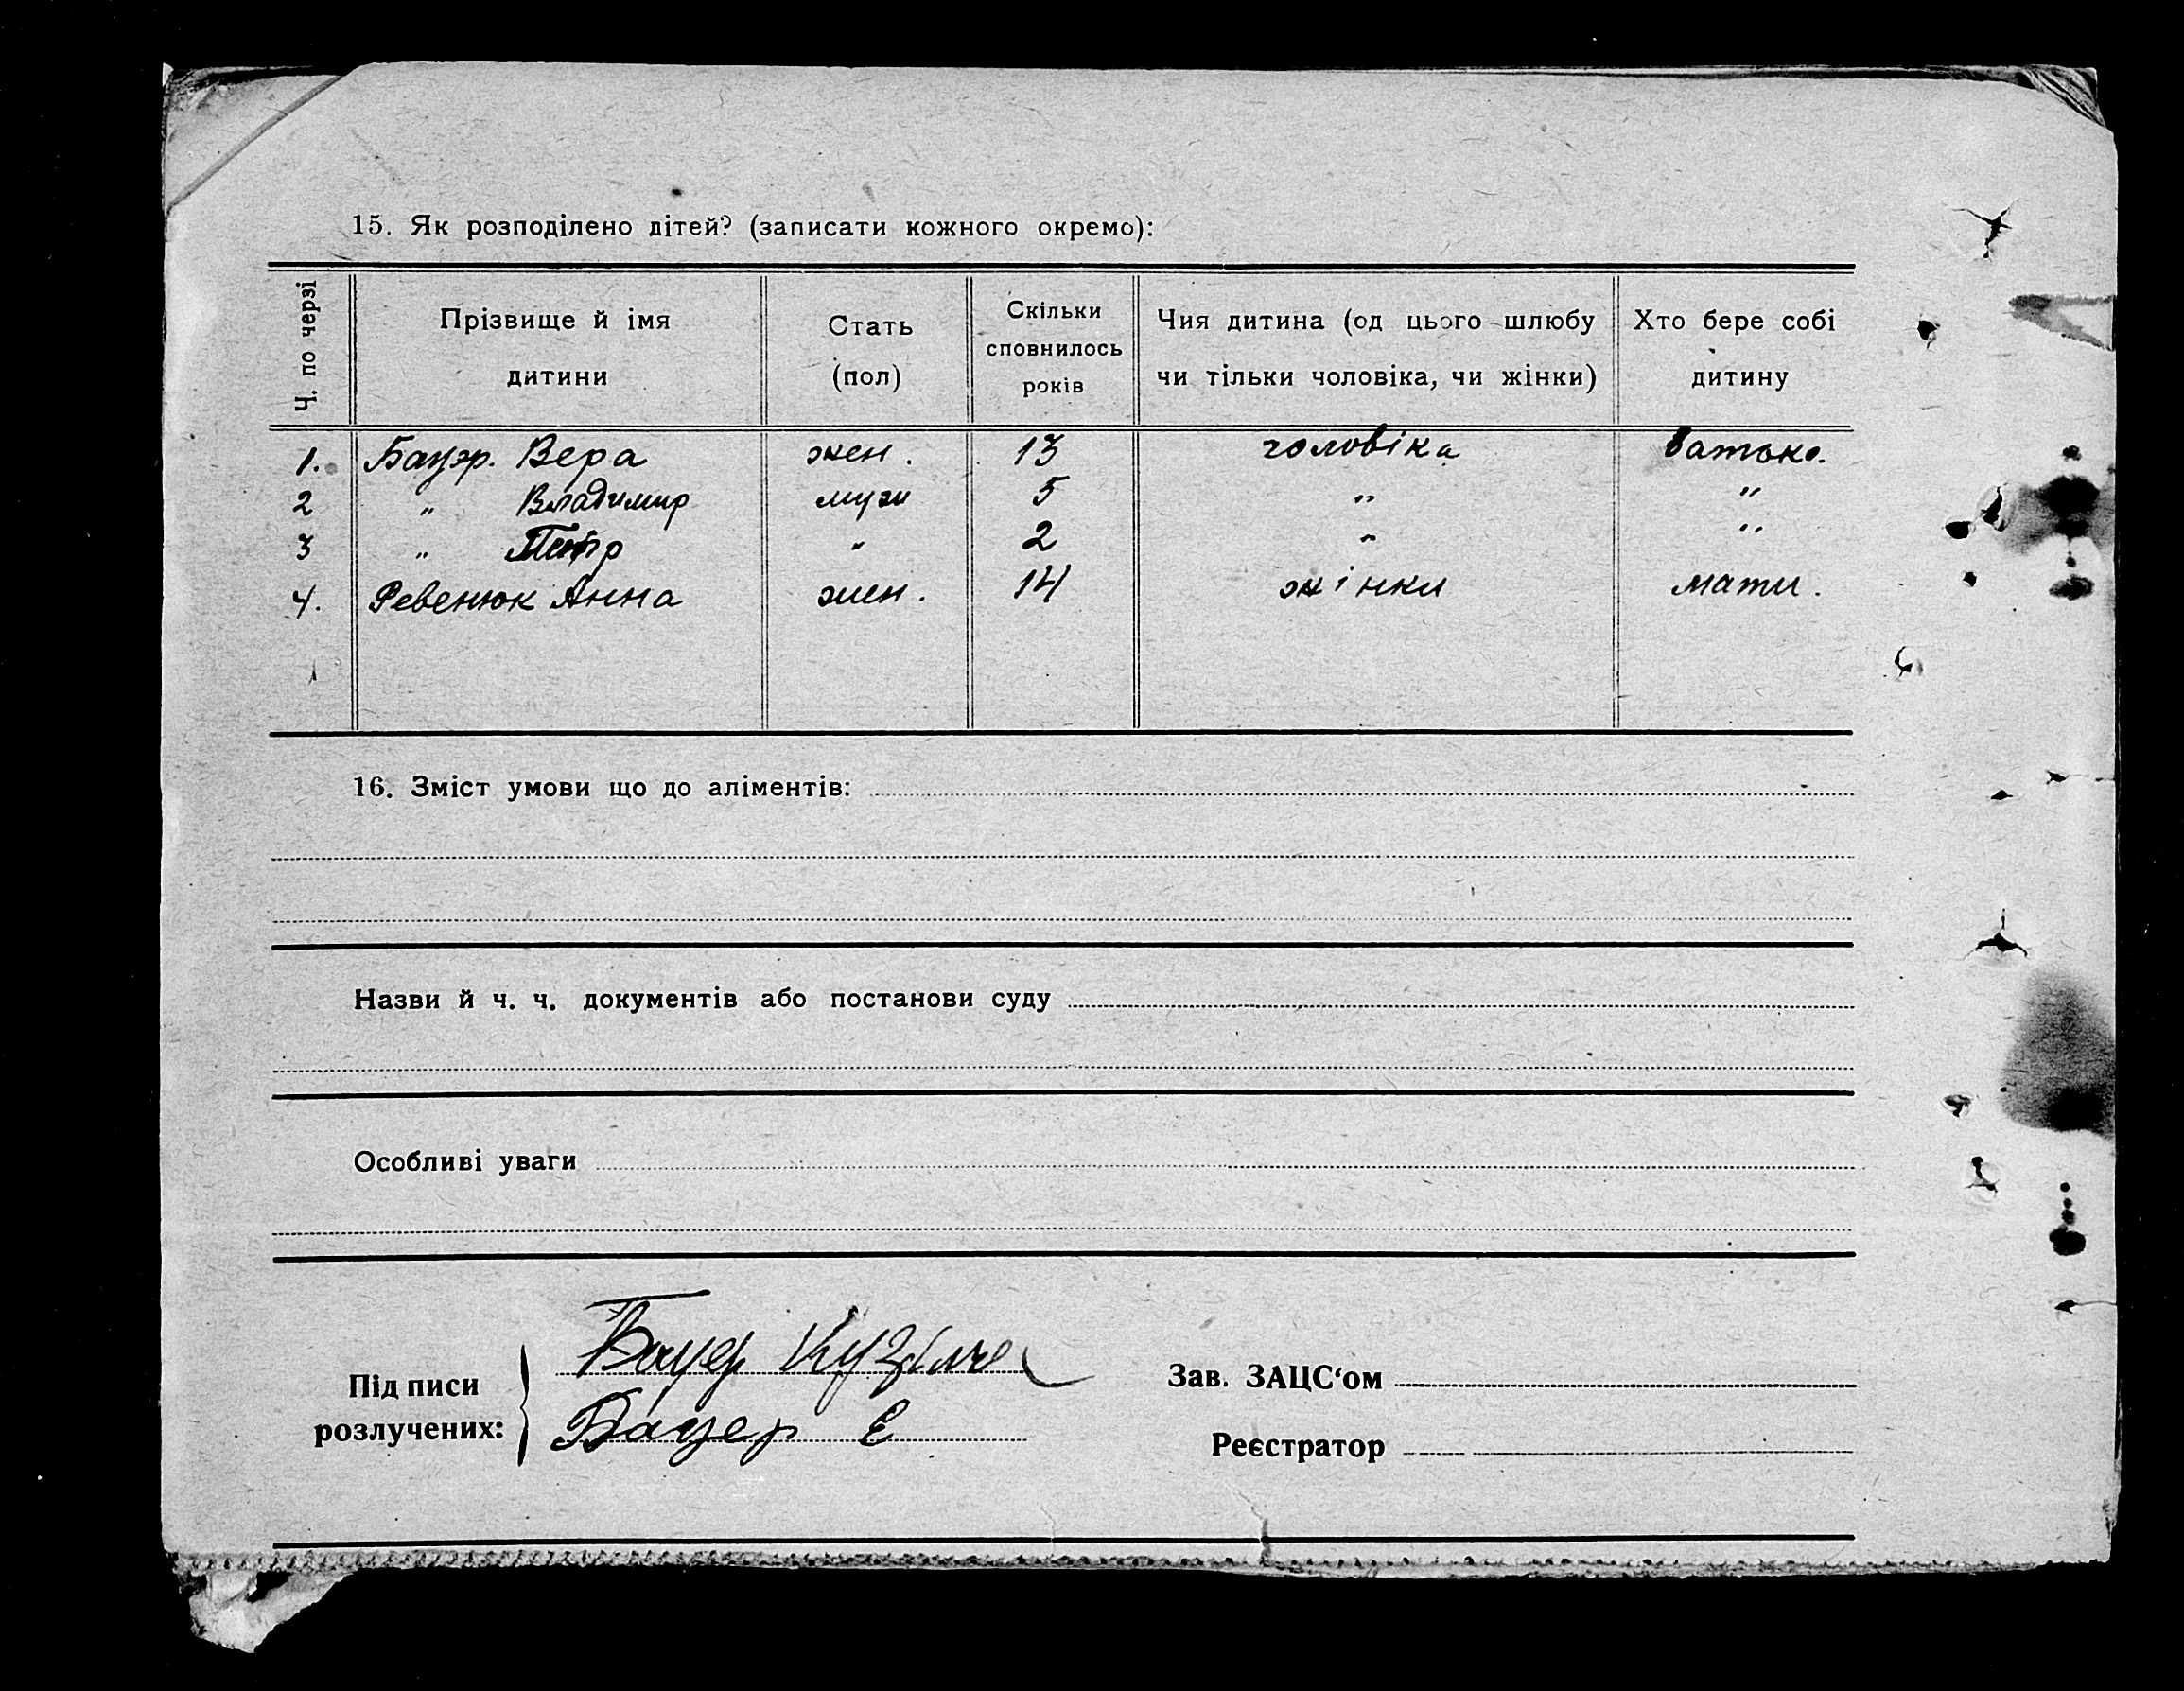 15. Як розподілено дітей? (записати кожного окремо):
Ч. по черзі | Прізвище й імя дитини | Стать (пол) | Скільки сповнилось років | Чия дитина (од цього шлюбу чи тільки чоловіка, чи жінки) | Хто бере собі дитину
1. Бауэр. Вера жен. 13 чоловіка батько.
2 " Владимир муж 5 " "
3 " Петр " 2 " "
4. Ревенюк Анна жен. 14 жінки мати.
16. Зміст умови що до аліментів:
Назви й ч. ч. документів або постанови суду
Особливі уваги
Підписи розлучених:
Бауер
Бауер Е
Зав. ЗАЦС‘ом
Реєстратор